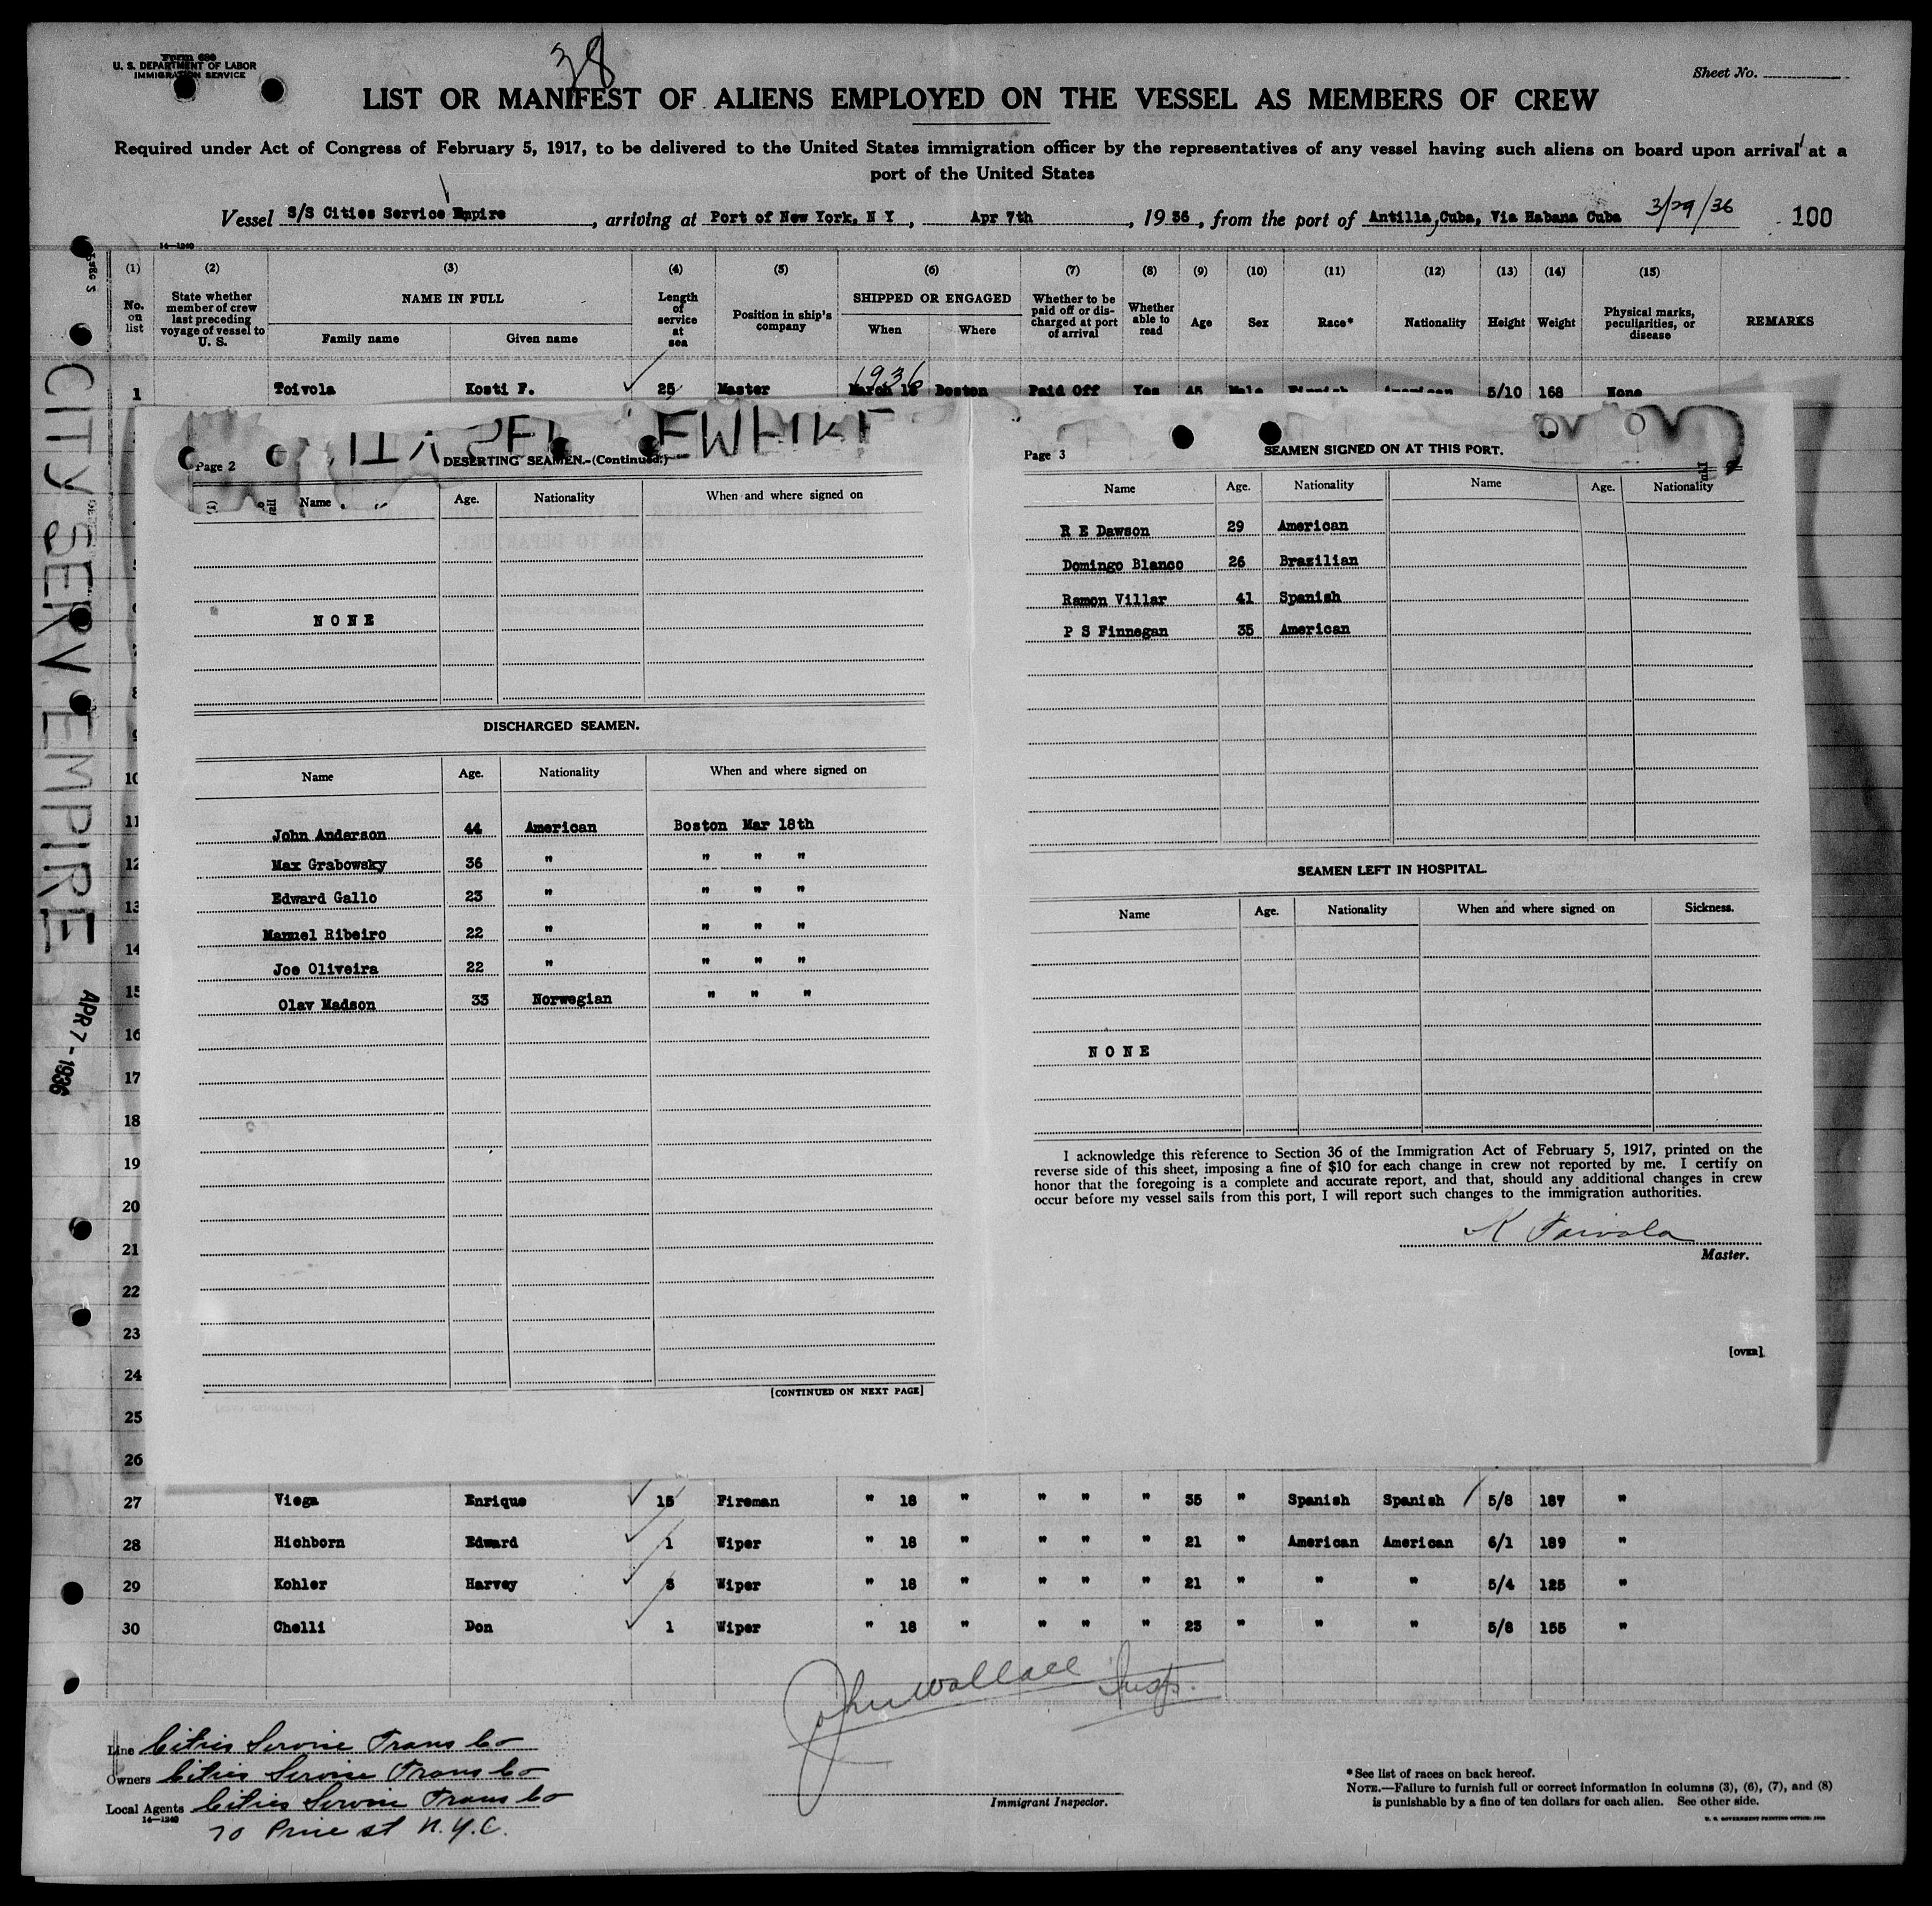 Form 680
U. S. DEPARTMENT OF LABOR
IMMIGRATION SERVICE
38
Sheet No.
LIST OR MANIFEST OF ALIENS EMPLOYED ON THE VESSEL AS MEMBERS OF CREW
Required under Act of Congress of February 5, 1917, to be delivered to the United States immigration officer by the representatives of any vessel having such aliens on board upon arrival at a
port of the United States
Vessel S/S Cities Service Empire, arriving at Port of New York, N Y, Apr 7th, 1936, from the port of Antilla, Cuba, Via Habana Cuba 3/29/36 100
14—1240
(1) (2) (3) (4) (5) (6) (7) (8) (9) (10) (11) (12) (13) (14) (15)
No. on list
State whether member of crew last preceding voyage of vessel to U. S.
NAME IN FULL
Family name Given name
Length of service at sea
Position in ship's company
SHIPPED OR ENGAGED
When Where
Whether to be paid off or discharged at port of arrival
Whether able to read
Age Sex Race* Nationality Height Weight
Physical marks, peculiarities, or disease
REMARKS
1936
1 Toivola Kosti F. 25 Master March 18 Boston Paid Off Yes 45 Male Finnish American 5/10 168 None
CITY SERV EMPIRE
APR 7 - 1936
Page 2
DESERTING SEAMEN.—(Continued.)
Name Age. Nationality When and where signed on
NONE
DISCHARGED SEAMEN.
Name Age. Nationality When and where signed on
John Anderson 44 American Boston Mar 18th
Max Grabowsky 36 " " " "
Edward Gallo 23 " " " "
Manuel Ribeiro 22 " " " "
Joe Oliveira 22 " " " "
Olav Madson 33 Norwegian " " "
[CONTINUED ON NEXT PAGE]
Page 3
SEAMEN SIGNED ON AT THIS PORT.
Name Age. Nationality Name Age. Nationality
R E Dawson 29 American
Domingo Blanco 26 Brazilian
Ramon Villar 41 Spanish
P S Finnegan 35 American
SEAMEN LEFT IN HOSPITAL.
Name Age. Nationality When and where signed on Sickness.
NONE
I acknowledge this reference to Section 36 of the Immigration Act of February 5, 1917, printed on the
reverse side of this sheet, imposing a fine of $10 for each change in crew not reported by me. I certify on
honor that the foregoing is a complete and accurate report, and that, should any additional changes in crew
occur before my vessel sails from this port, I will report such changes to the immigration authorities.
K Toivola
Master.
[OVER]
8
9
10
11
12
13
14
15
16
17
18
19
20
21
22
23
24
25
26
27 Viega Enrique 15 Fireman " 18 " " " " 35 " Spanish Spanish 5/8 187 "
28 Hichborn Edward 1 Wiper " 18 " " " " 21 " American American 6/1 189 "
29 Kohler Harvey 3 Wiper " 18 " " " " 21 " " " 5/4 125 "
30 Chelli Don 1 Wiper " 18 " " " " 23 " " " 5/8 155 "
John Wallace Insp.
Immigrant Inspector.
Line Cities Service Trans Co
Owners Cities Service Trans Co
Local Agents Cities Service Trans Co
14—1240
70 Pine st N.Y.C.
*See list of races on back hereof.
NOTE.—Failure to furnish full or correct information in columns (3), (6), (7), and (8)
is punishable by a fine of ten dollars for each alien. See other side.